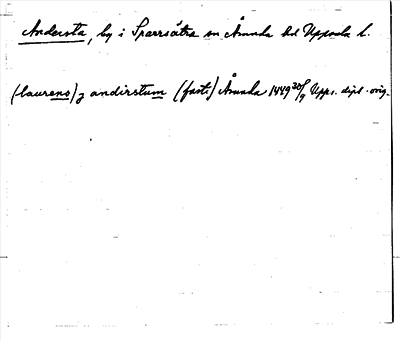 Andersta, by i Sparrsätra sn Åsunda hd Uppsala l.
(laurens) j andirstum (fasti) Åsunda 1449 30/9 Upps. dipl. orig.